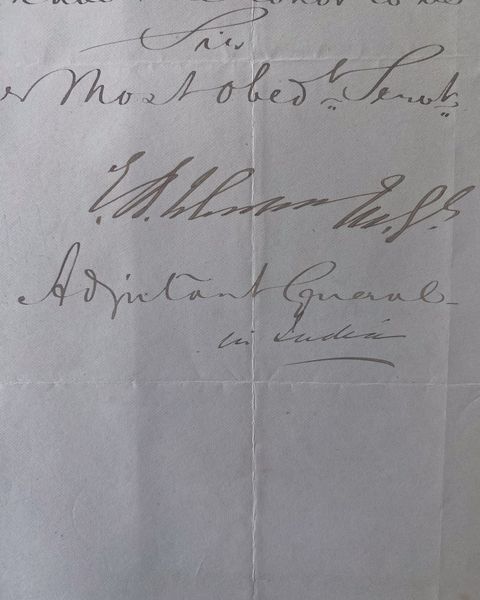 honor to be
Sir
Most obedt. Servt.
E. B. Johnson M. Gl.
Adjutant General
in India